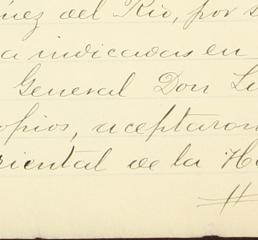 ñez del Rio, por s
a indicadas en
General Don Lu
opios, aceptaron
riental de la Ha